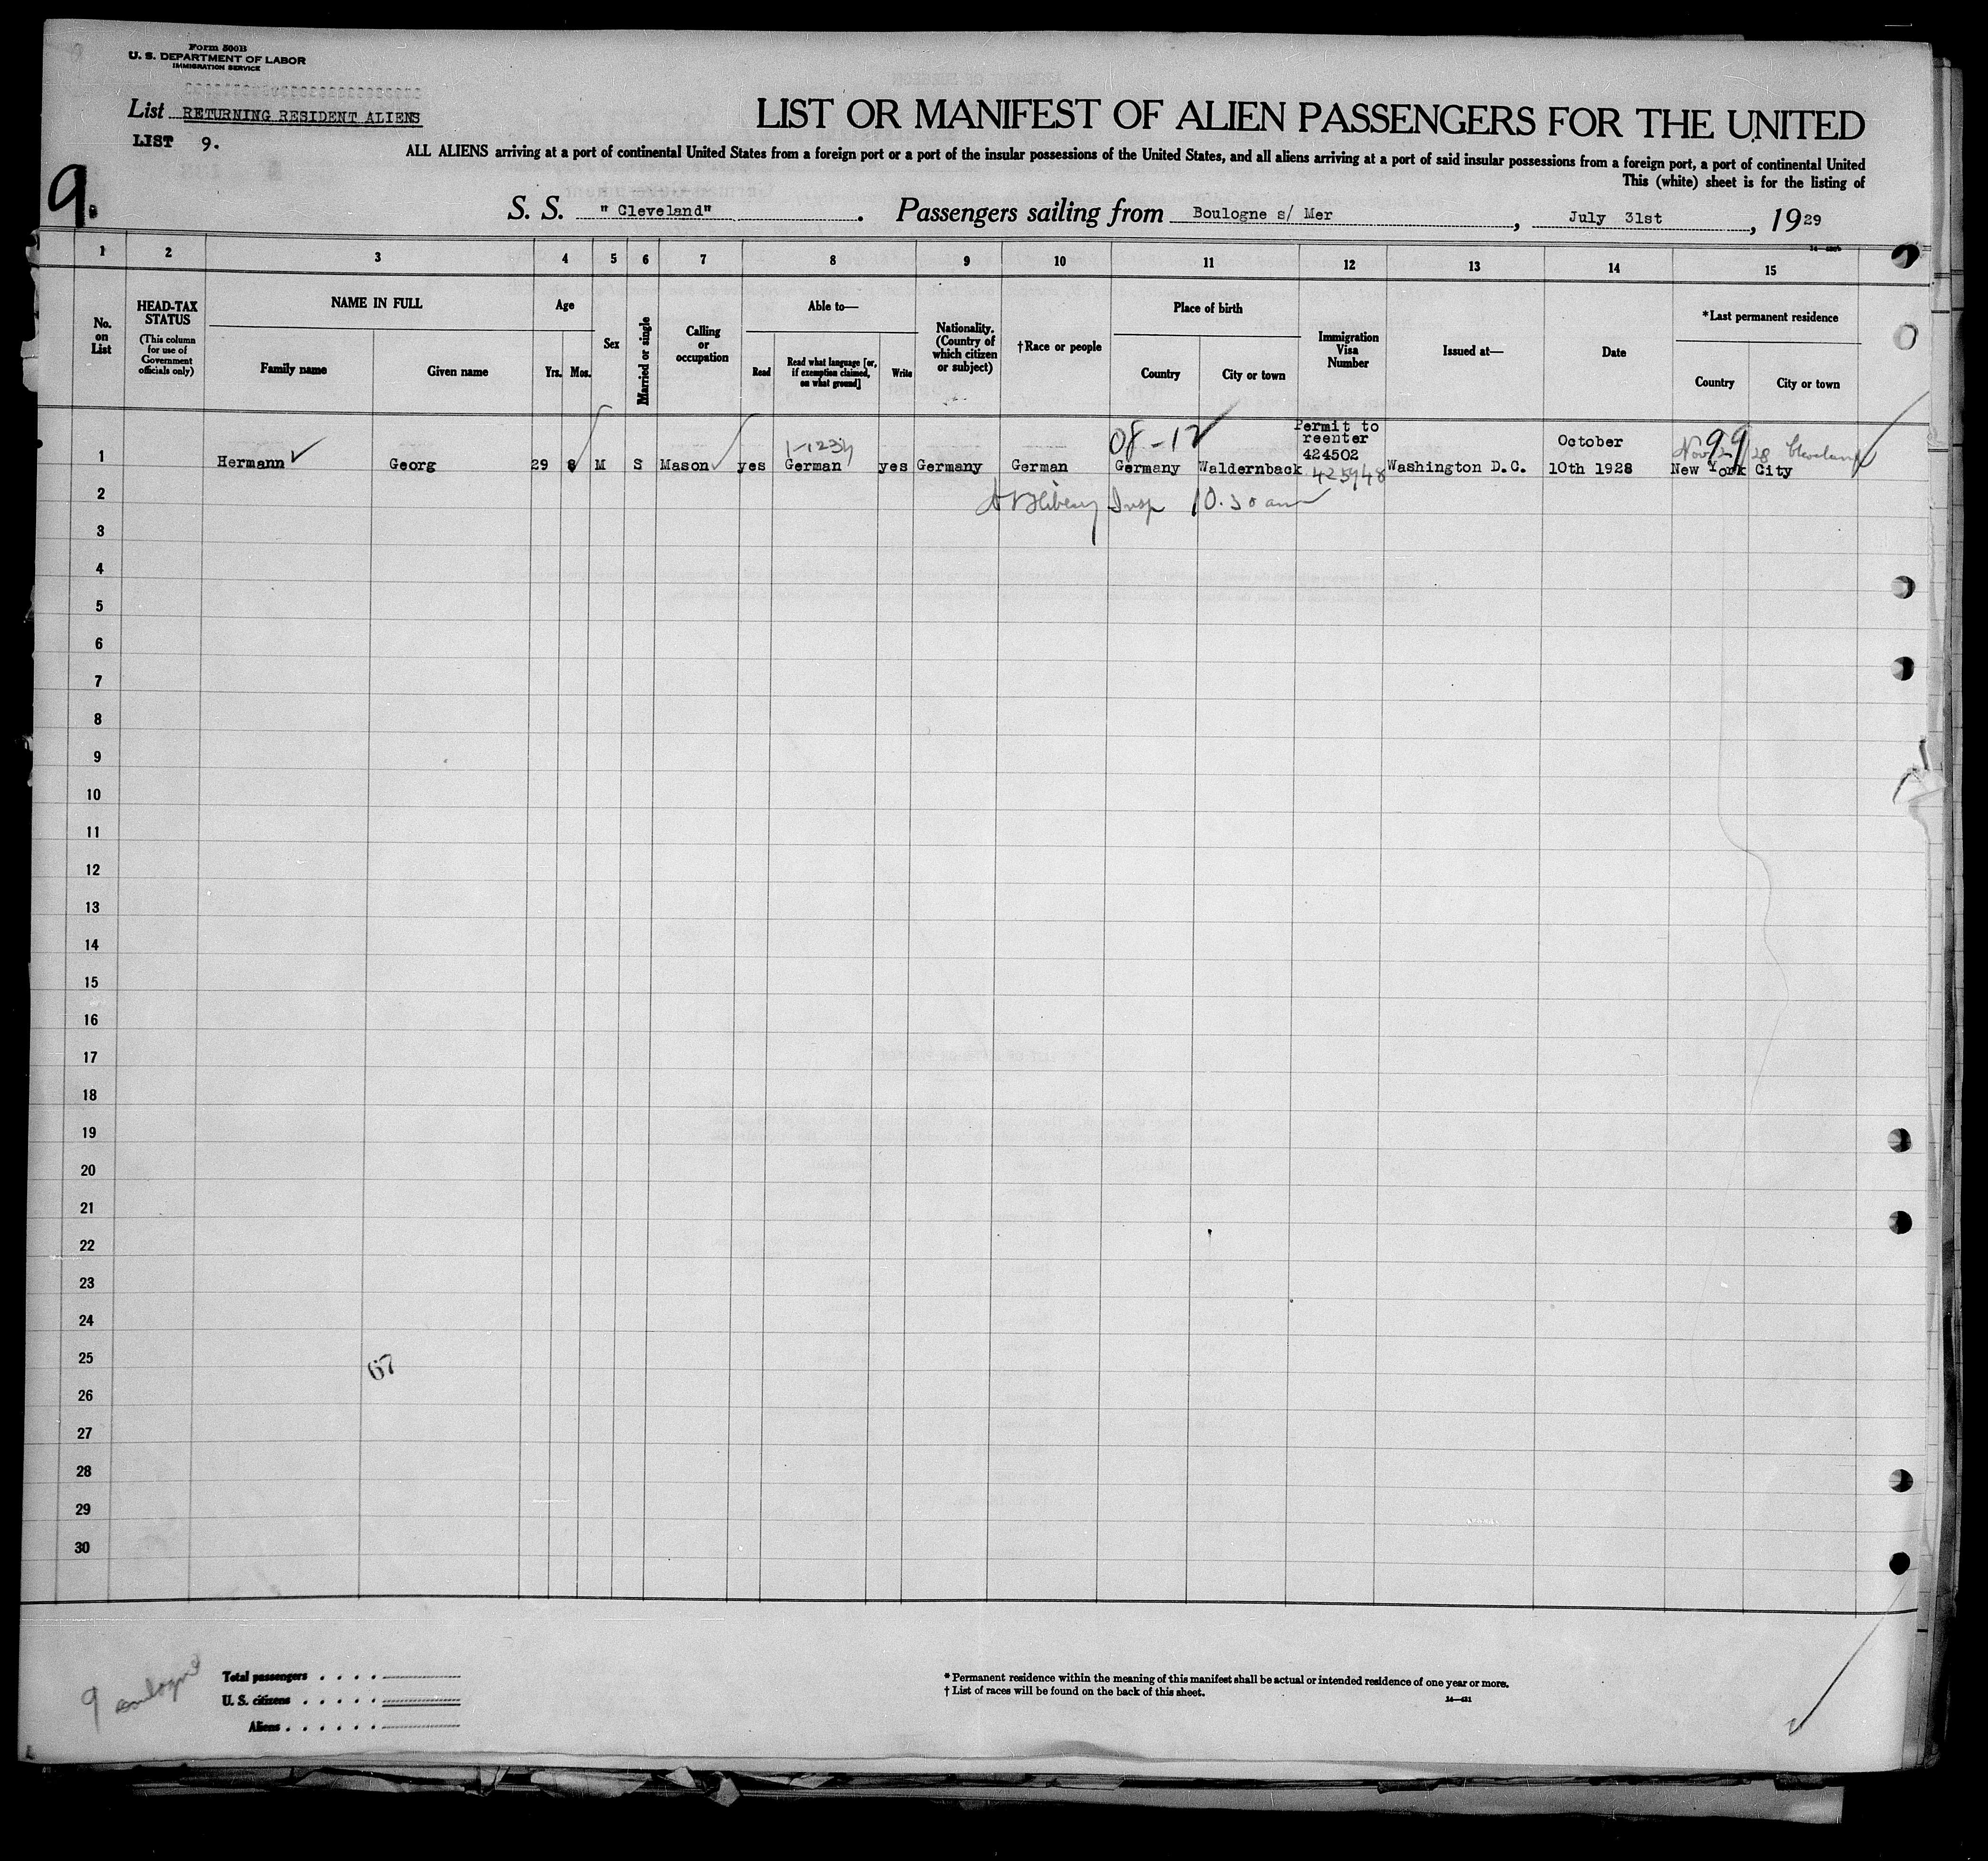 Form 500B
U. S. DEPARTMENT OF LABOR
IMMIGRATION SERVICE
List RETURNING RESIDENT ALIENS
LIST 9.
9.
LIST OR MANIFEST OF ALIEN PASSENGERS FOR THE UNITED
ALL ALIENS arriving at a port of continental United States from a foreign port or a port of the insular possessions of the United States, and all aliens arriving at a port of said insular possessions from a foreign port, a port of continental United
This (white) sheet is for the listing of
S. S. " Cleveland" . Passengers sailing from Boulogne s/ Mer , July 31st , 1929
1 2 3 4 5 6 7 8 9 10 11 12 13 14 15
No. on List
HEAD-TAX STATUS
(This column for use of Government officials only)
NAME IN FULL
Family name Given name
Age
Yrs. Mos.
Sex
Married or single
Calling or occupation
Able to—
Read
Read what language [or, if exemption claimed, on what ground]
Write
Nationality. (Country of which citizen or subject)
†Race or people
Place of birth
Country City or town
Immigration Visa Number
Issued at—
Date
*Last permanent residence
Country City or town
08-12
Permit to
reenter
424502
October
99
1 Hermann Georg 29 8 M S Mason yes German yes Germany German Germany Waldernback Washington D.C. 10th 1928 New York City
Insp 10.30 am
2
3
4
5
6
7
8
9
10
11
12
13
14
15
16
17
18
19
20
21
22
23
24
25
67
26
27
28
29
30
9
Total passengers . . . .
U. S. citizens . . . . .
Aliens . . . . . .
* Permanent residence within the meaning of this manifest shall be actual or intended residence of one year or more.
† List of races will be found on the back of this sheet.